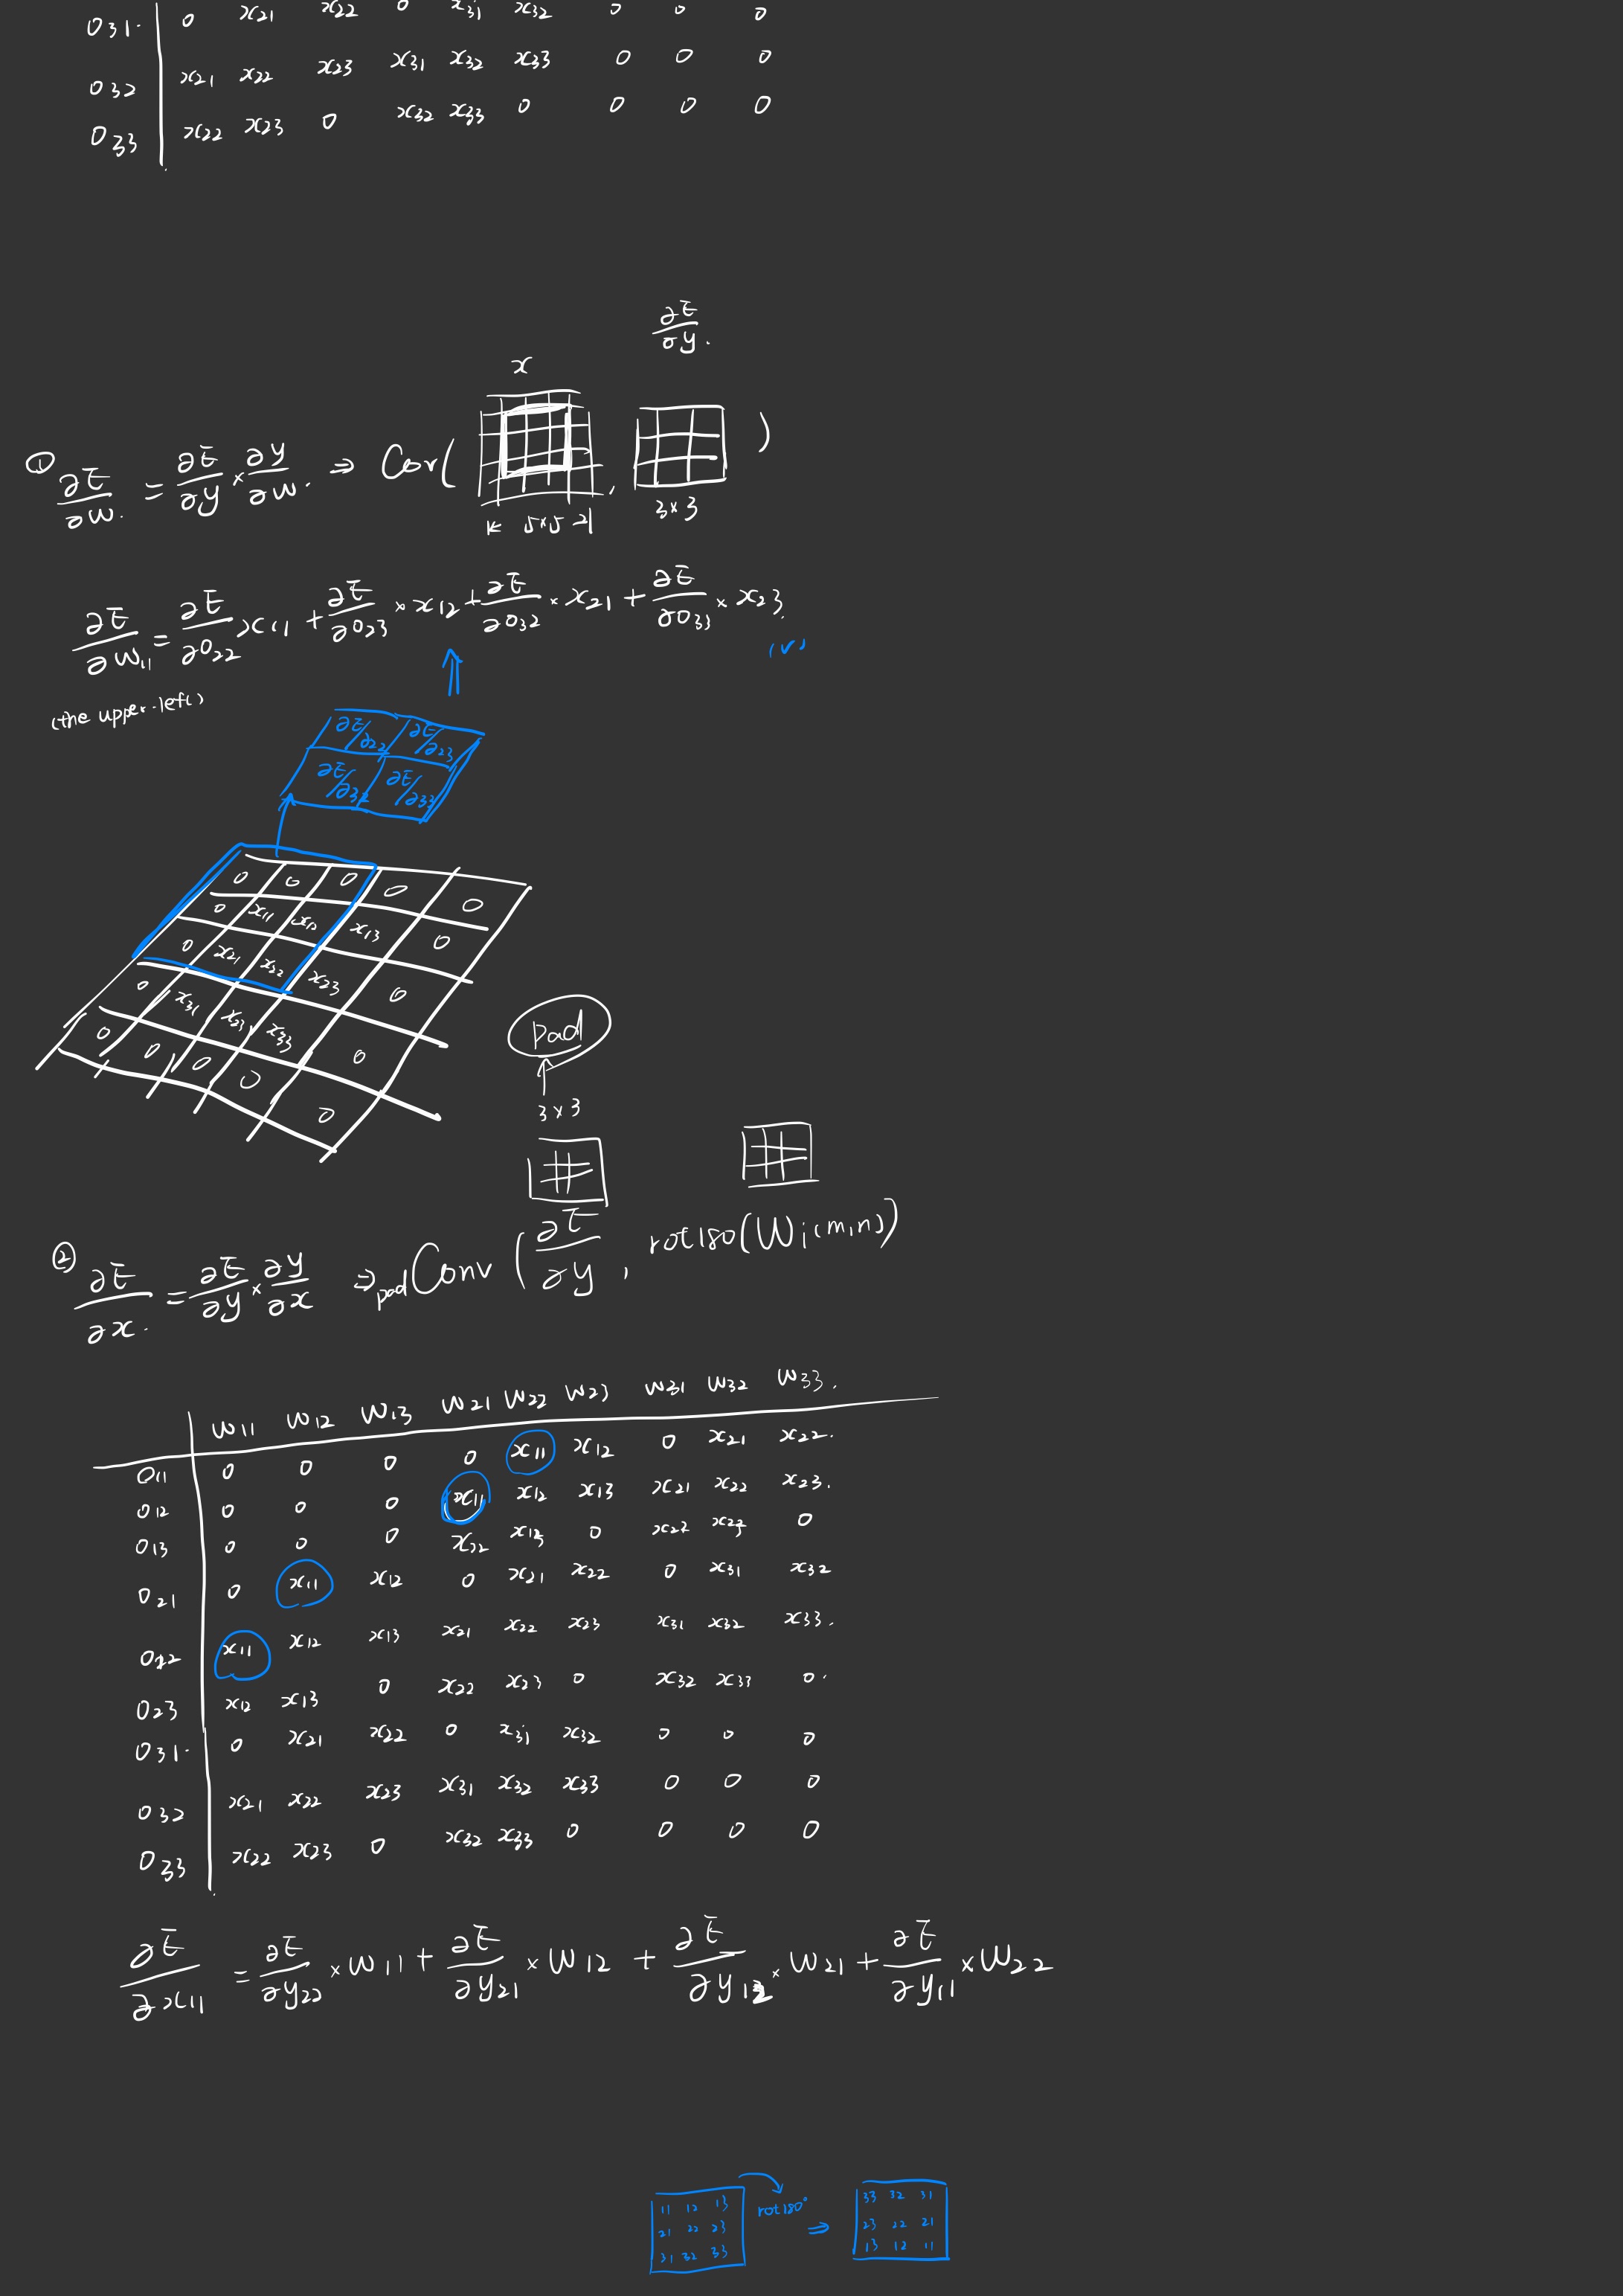 O31. 0 x21 x22 0 x31 x32 0 0 0
O32 x21 x22 x23 x31 x32 x33 0 0 0
O33 x22 x23 0 x32 x33 0 0 0 0
∂E/∂y.
x
① ∂E/∂w. = ∂E/∂y × ∂y/∂w. ⇒ Cor( , )
5×5
3×3
∂E/∂w11 = ∂E/∂O22 x11 + ∂E/∂O23 × x12 + ∂E/∂O32 × x21 + ∂E/∂O33 × x23.
(the upper left)
(v)
∂E/∂22 ∂E/∂23
∂E/∂32 ∂E/∂33
0 0 0 0 0
0 x11 x12 x13 0
0 x21 x22 x23 0
0 x31 x33 0
0 0 0 0 0
pad
3×3
② ∂E/∂x. = ∂E/∂y × ∂y/∂x ⇒ pad Conv (∂E/∂y, rot180(Wi(m,n))
w11 w12 w13 w21 w22 w23 w31 w32 w33.
O11 0 0 0 0 x11 x12 0 x21 x22.
O12 0 0 0 x11 x12 x13 x21 x22 x23.
O13 0 0 0 x22 x13 0 x22 x23 0
O21 0 x11 x12 0 x21 x22 0 x31 x32
O22 x11 x12 x13 x21 x22 x23 x31 x32 x33.
O23 x12 x13 0 x22 x23 0 x32 x33 0.
O31. 0 x21 x22 0 x31 x32 0 0 0
O32 x21 x22 x23 x31 x32 x33 0 0 0
O33 x22 x23 0 x32 x33 0 0 0 0
∂E/∂x11 = ∂E/∂y22 × w11 + ∂E/∂y21 × w12 + ∂E/∂y12 × w21 + ∂E/∂y11 × w22
11 12 13
21 22 23
31 32 33
rot180° ⇒
33 32 31
23 22 21
13 12 11